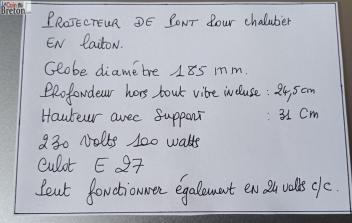 Le Coin du
Breton
PROJECTEUR DE PONT pour chalutier
EN laiton.
Globe diamétre 185 mm.
Profondeur hors tout vitre incluse : 24,5cm
Hauteur avec Support : 31 Cm
230 Volts 100 watts
Culot E 27
Peut fonctionner également en 24 volts c/c.